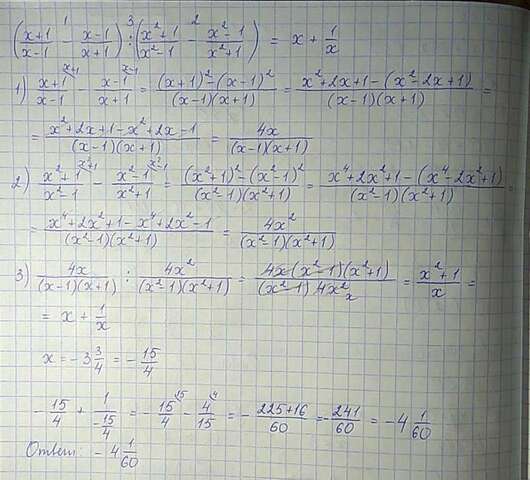 (x+1/x-1 - x-1/x+1) : (x²+1/x²-1 - x²-1/x²+1) = x + 1/x
1) x+1/x-1 - x-1/x+1 = (x+1)²-(x-1)²/(x-1)(x+1) = x²+2x+1-(x²-2x+1)/(x-1)(x+1) =
= x²+2x+1-x²+2x-1/(x-1)(x+1) = 4x/(x-1)(x+1)
2) x²+1/x²-1 - x²-1/x²+1 = (x²+1)²-(x²-1)²/(x²-1)(x²+1) = x⁴+2x²+1-(x⁴-2x²+1)/(x²-1)(x²+1) =
= x⁴+2x²+1-x⁴+2x²-1/(x²-1)(x²+1) = 4x²/(x²-1)(x²+1)
3) 4x/(x-1)(x+1) : 4x²/(x²-1)(x²+1) = 4x(x²-1)(x²+1)/(x²-1)4x² = x²+1/x =
= x + 1/x
x = -3 3/4 = - 15/4
- 15/4 + 1/-15/4 = - 15/4 - 4/15 = - 225+16/60 = - 241/60 = -4 1/60
Ответ: -4 1/60